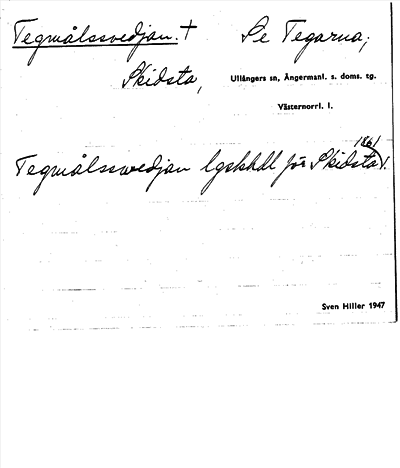 Tegmålssvedjan. + Se Tegarna;
Skidsta, Ullångers sn, Ångermanl. s. doms. tg.
Västernorrl. l.
1861
Tegmålsswedjan lgskhdl för Skidsta).
Sven Hiller 1947